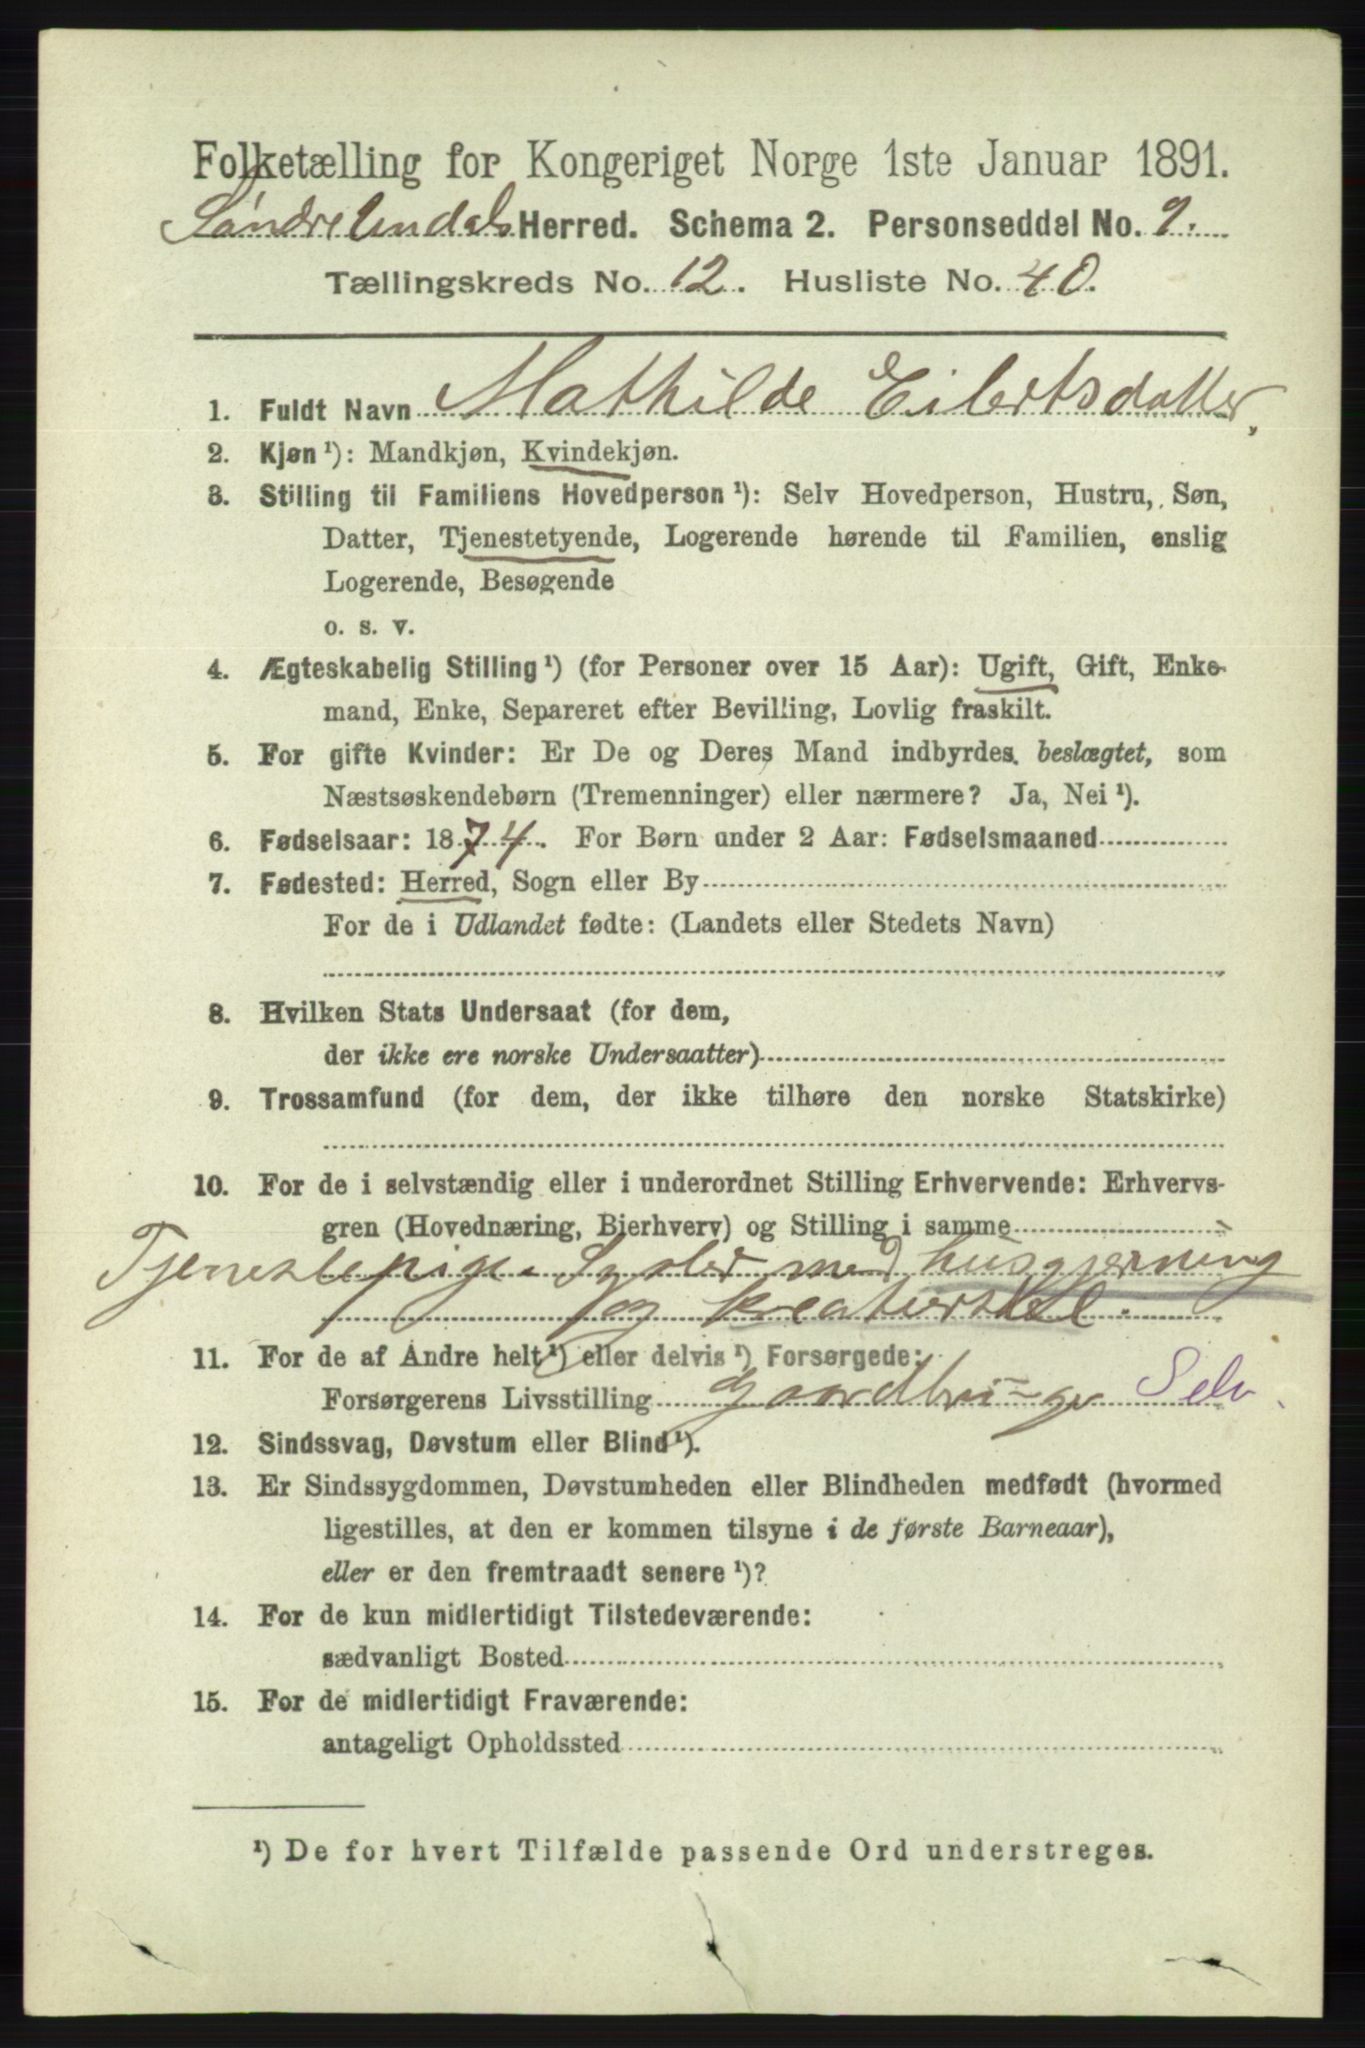 Folketælling for Kongeriget Norge 1ste Januar 1891.
Søndre Undals Herred. Schema 2. Personseddel No. 9.
Tællingskreds No. 12. Husliste No. 40.
1. Fuldt Navn Mathilde Eilertsdatter,
2. Kjøn ¹): Mandkjøn, Kvindekjøn.
3. Stilling til Familiens Hovedperson ¹): Selv Hovedperson, Hustru, Søn,
Datter, Tjenestetyende, Logerende hørende til Familien, enslig
Logerende, Besøgende
o. s. v.
4. Ægteskabelig Stilling ¹) (for Personer over 15 Aar): Ugift, Gift, Enke-
mand, Enke, Separeret efter Bevilling, Lovlig fraskilt.
5. For gifte Kvinder: Er De og Deres Mand indbyrdes beslægtet, som
Næstsøskendebørn (Tremenninger) eller nærmere? Ja, Nei ¹).
6. Fødselsaar: 1874. For Børn under 2 Aar: Fødselsmaaned
7. Fødested: Herred, Sogn eller By
For de i Udlandet fødte: (Landets eller Stedets Navn)
8. Hvilken Stats Undersaat (for dem,
der ikke ere norske Undersaatter)
9. Trossamfund (for dem, der ikke tilhøre den norske Statskirke)
10. For de i selvstændig eller i underordnet Stilling Erhvervende: Erhvervs-
gren (Hovednæring, Bierhverv) og Stilling i samme
Tjenestepige. Sysler med husgjerning
og kreaturstel.
11. For de af Andre helt ¹) eller delvis ¹) Forsørgede:
Forsørgerens Livsstilling Gaardbruger Selv.
12. Sindssvag, Døvstum eller Blind ¹).
13. Er Sindssygdommen, Døvstumheden eller Blindheden medfødt (hvormed
ligestilles, at den er kommen tilsyne i de første Barneaar),
eller er den fremtraadt senere ¹)?
14. For de kun midlertidigt Tilstedeværende:
sædvanligt Bosted
15. For de midlertidigt Fraværende:
antageligt Opholdssted
¹) De for hvert Tilfælde passende Ord understreges.